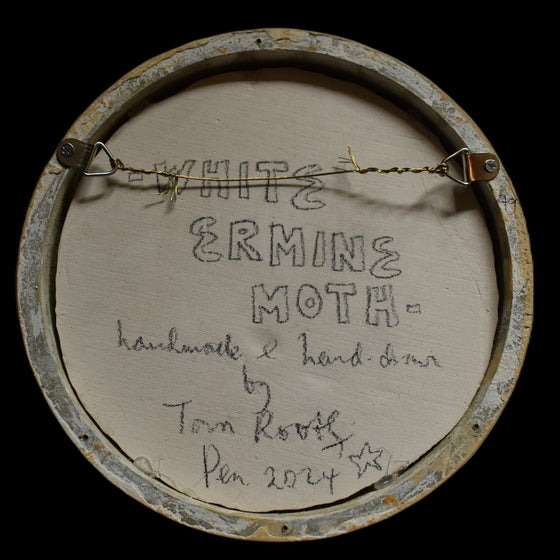 -WHITE
ERMINE
MOTH-
handmade & hand-drawn
by
Tom Rooth
Pen 2024